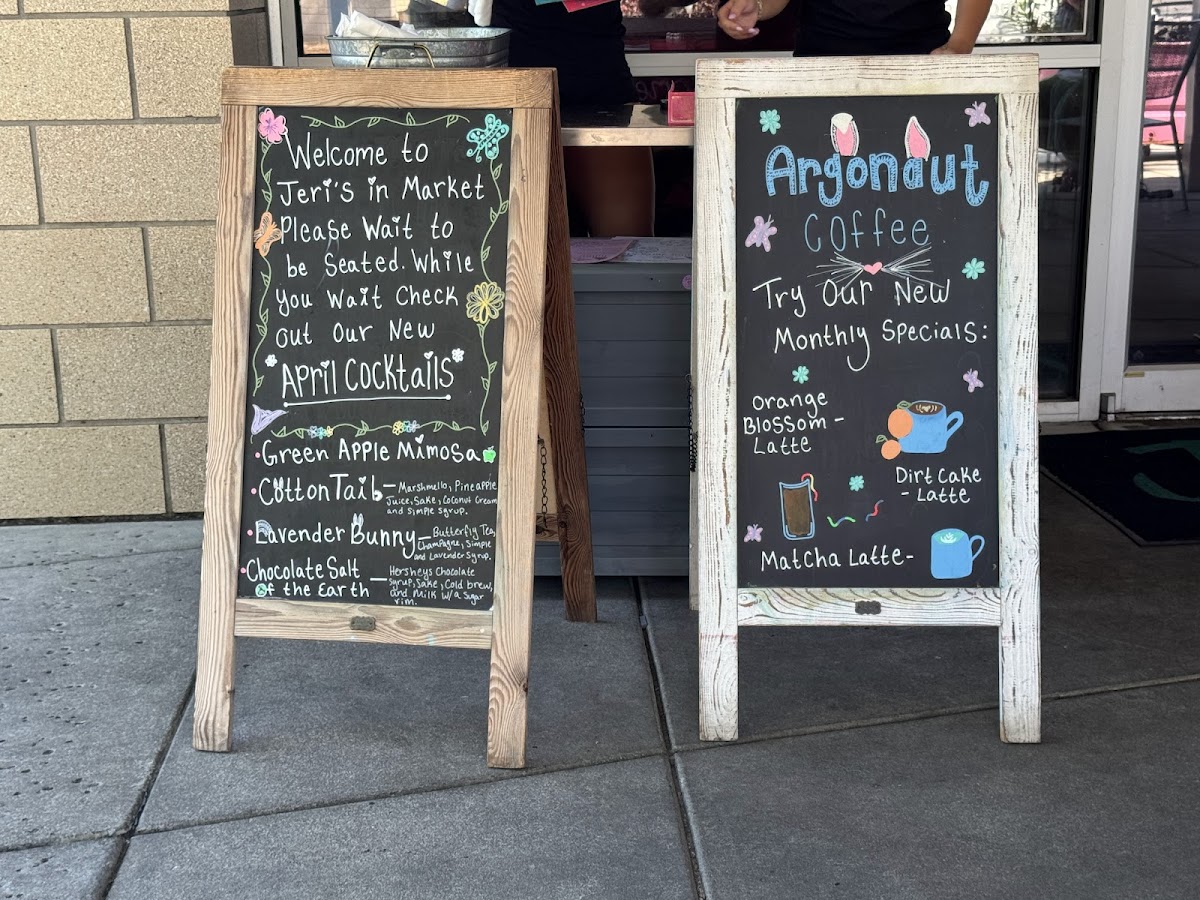 Welcome to
Jeri's in Market
Please Wait to
be Seated. While
you wait Check
out our New
April Cocktails
Green Apple Mimosa
Cotton Tail - Marshmello, Pineapple
Juice, Sake, Coconut Cream
and simple syrup.
Lavender Bunny - Butterfly Tea,
Champagne, Simple
and Lavender Syrup.
Chocolate Salt
of the Earth - Hersheys Chocolate
syrup, Sake, Cold brew,
and Milk w/a Sugar
rim.
Argonaut
Coffee
Try Our New
Monthly Specials:
Orange
Blossom -
Latte
Dirt Cake
- Latte
Matcha Latte -